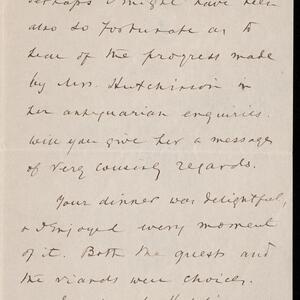 perhaps I might have been
also so fortunate as to
hear of the progress made
by Mrs. Hutchinson in
her antiquarian enquiries.
Will you give her a message
of very cousinly regards.
Your dinner was delightful,
& I enjoyed every moment
of it. Both the guests and
the viands were choice.